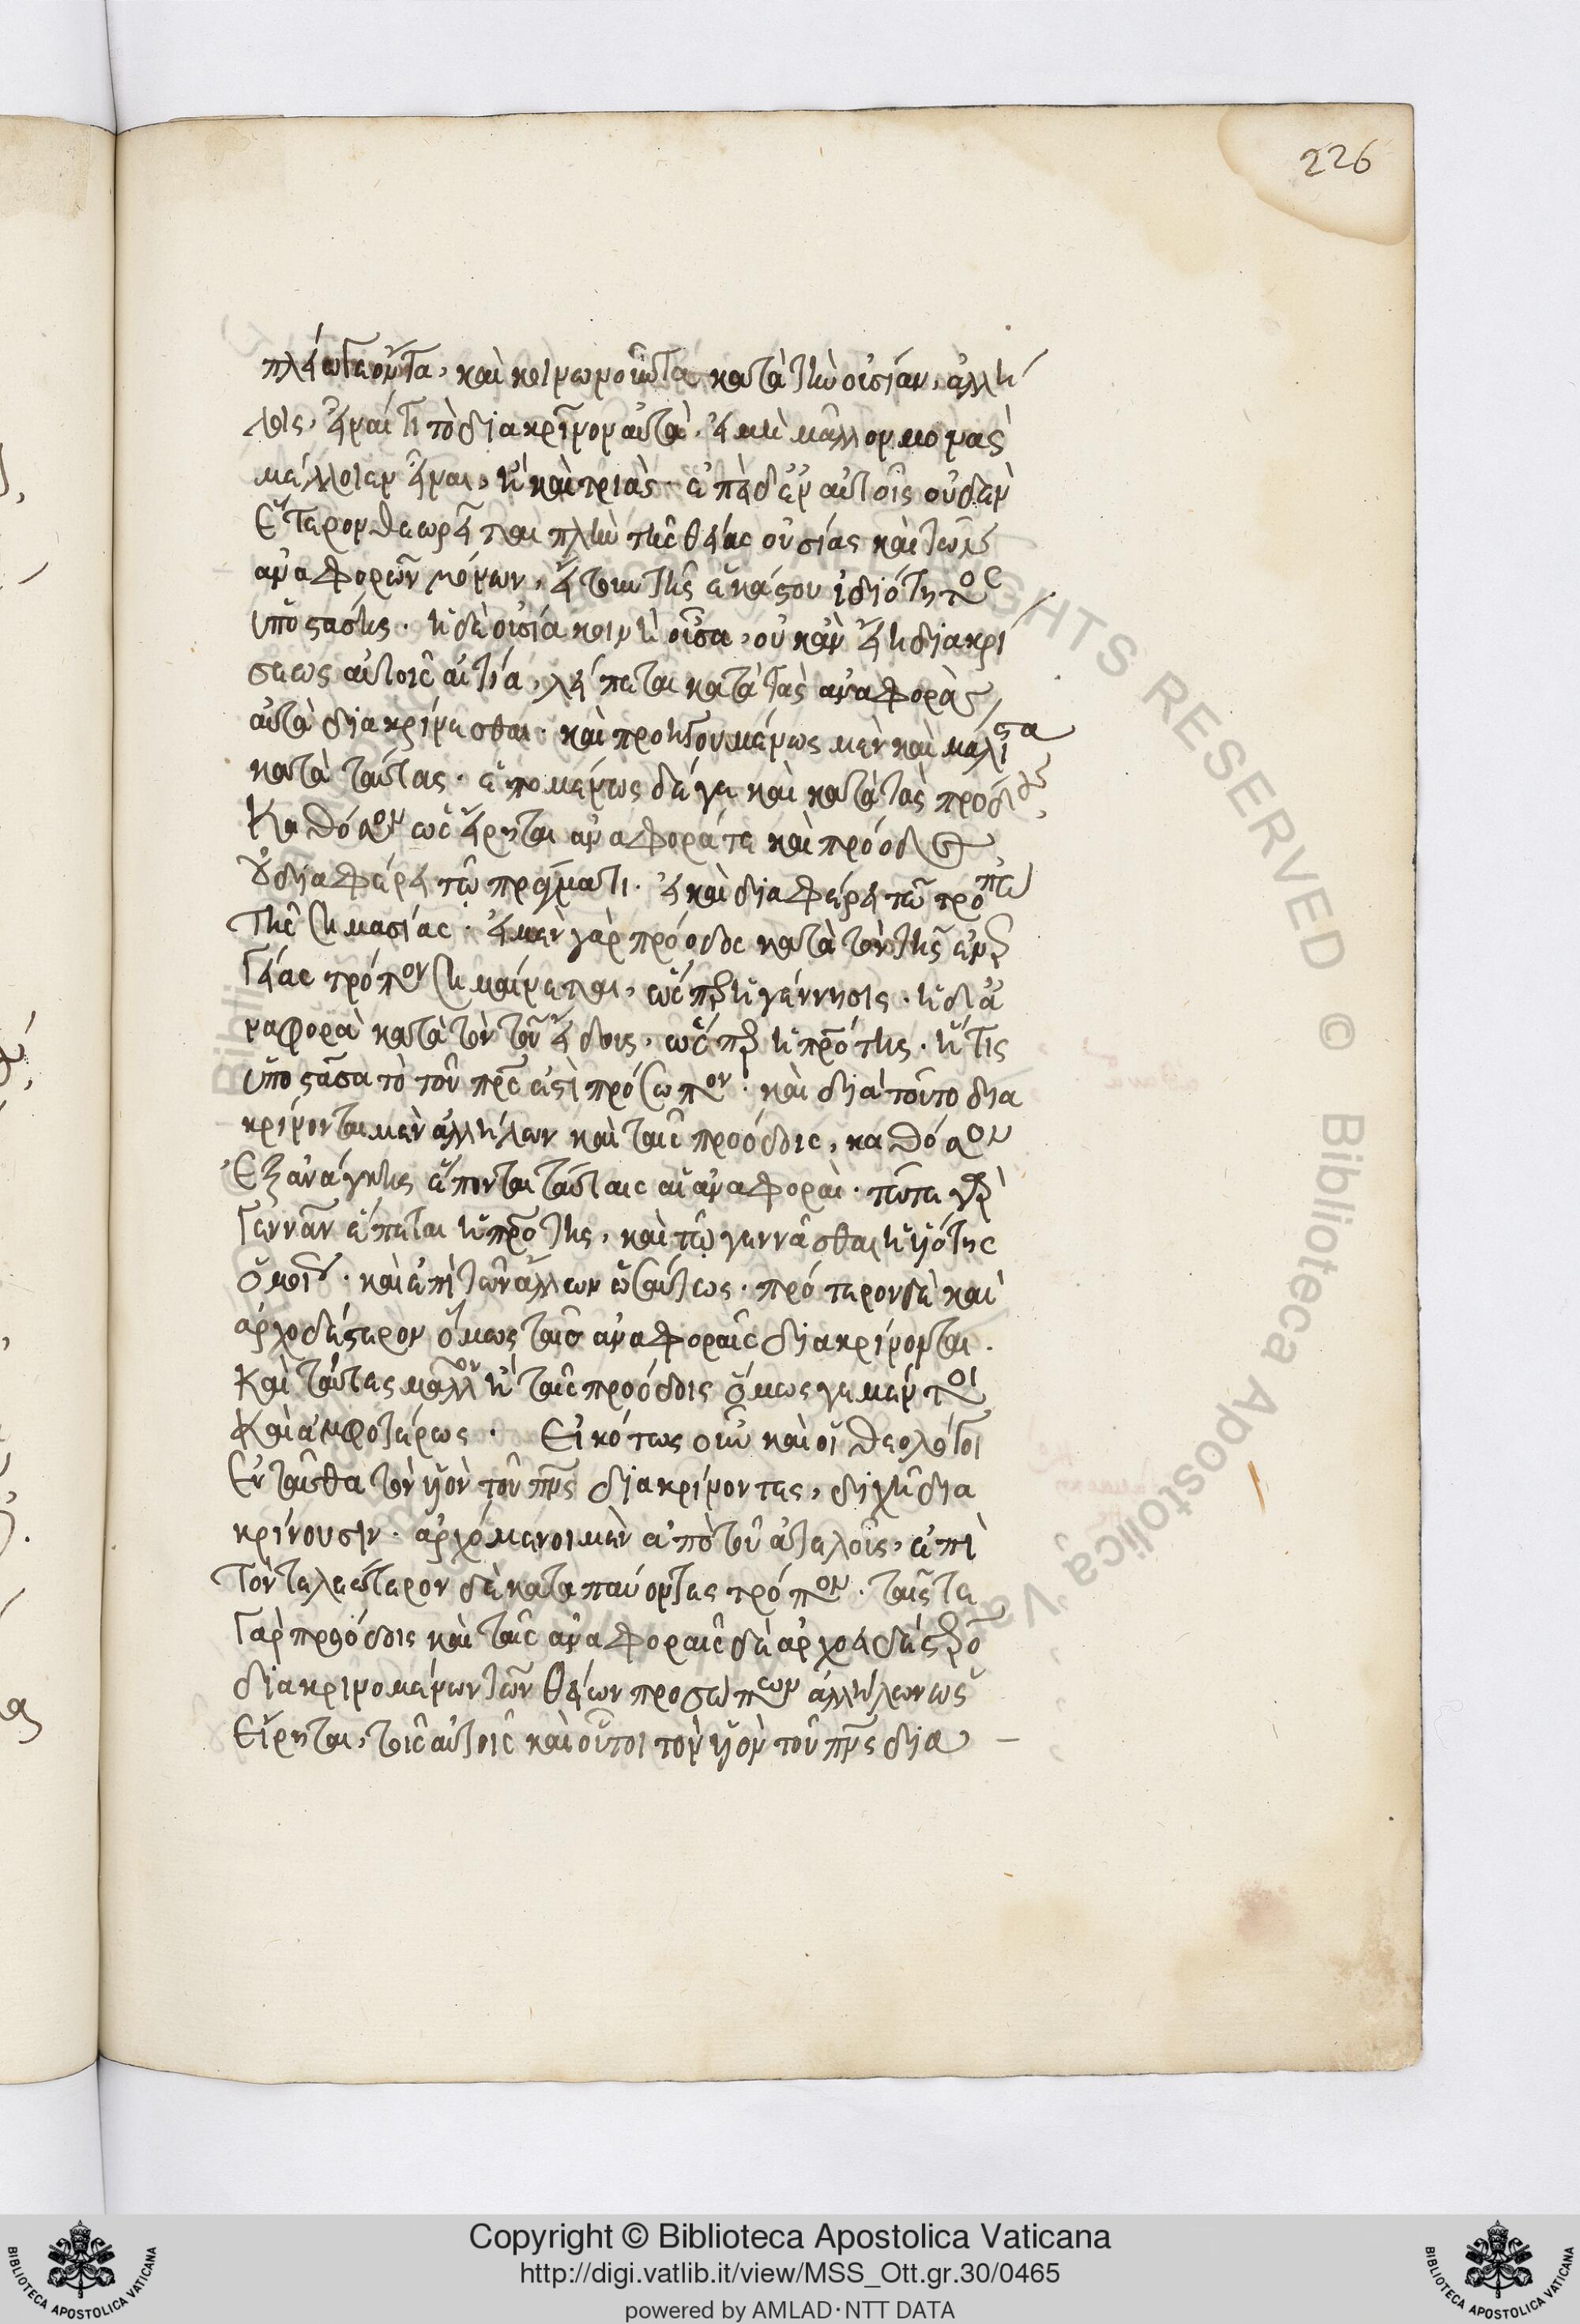 226
πλείω γε ὄντα, καὶ κοινωνοῦντα κατὰ τὴν οὐσίαν, ἀλλή
λοις, εἶναί τι τὸ διακρῖνον αὐτά, εἰ μὴ μᾶλλον μονὰς
μέλλοιεν εἶναι, ἢ καὶ τριάς. ἐπεὶ δ' ἐν αὐτοῖς οὐδὲν
ἕτερον θεωρεῖται πλὴν τῆς θείας οὐσίας καὶ τῶν
ἀναφορῶν μόνων, εἴτουν τῆς ἑκάστου ἰδιότητος
ὑποστάσης. ἡ δὲ οὐσία κοινὴ οὖσα, οὐκ ἂν εἴη διακρί
σεως αὐτοῖς αἰτία, λείπεται κατὰ τὰς ἀναφορὰς
αὐτὰ διακρίνεσθαι. καὶ προηγουμένως μὲν καὶ μάλιστα
κατὰ ταύτας. ἑπομένως δέ γε καὶ κατὰ τὰς προόδους,
καθόσον ὡς εἴρηται ἀναφορά τε καὶ πρόοδος
οὐ διαφέρει τῷ πράγματι. εἰ καὶ διαφέρει τῷ τρόπῳ
τῆς σημασίας. εἰ μὲν γὰρ πρόοδος κατὰ τὸν τῆς ἐνερ
γείας τρόπον σημαίνεται, ὥσπερ ἡ γέννησις. ἡ δ' ἀ
ναφορὰ κατὰ τὸν τοῦ εἴδους, ὥσπερ ἡ πρότης. ἥτις
ὑποστᾶσα τὸ τοῦ πρς ἐστὶ πρόσωπον. καὶ διὰ τοῦτο δια
κρίνονται μὲν ἀλλήλων καὶ ταῖς προόδοις, καθόσον
ἐξ ἀνάγκης ἕπονται ταύταις αἱ ἀναφοραί. τῷ τε γὰρ
γεννᾶν ἕπεται ἡ πρότης, καὶ τῷ γεννᾶσθαι ἡ υἱότης
ὁμοίως. καὶ ἐπὶ τῶν ἄλλων ὡσαύτως. πρότερον δὲ καὶ
ἀρχοειδέστερον ὅμως ταῖς ἀναφοραῖς διακρίνονται.
καὶ ταύταις μᾶλλον ἢ ταῖς προόδοις ὅμως γε μέντοι
καὶ ἀμφοτέρως. Εἰκότως οὖν καὶ οἱ θεολόγοι
ἐνταῦθα τὸν υἱὸν τοῦ πρς διακρίνοντες, διχῆ δια
κρίνουσιν. ἀρχόμενοι μὲν ἀπὸ τοῦ ἀτελοῦς, ἐπὶ
τὸν τελεώτερον δὲ καταπαύοντες τρόπον. ταῖς τε
γὰρ προόδοις καὶ ταῖς ἀναφοραῖς δὲ ἀρχοειδέστερον
διακρινομένων τῶν θείων προσώπων ἀλλήλων ὡς
εἴρηται, τοῖς αὐτοῖς καὶ οὗτοι τὸν υἱὸν τοῦ πρς δια
Copyright © Biblioteca Apostolica Vaticana
http://digi.vatlib.it/view/MSS_Ott.gr.30/0465
powered by AMLAD·NTT DATA